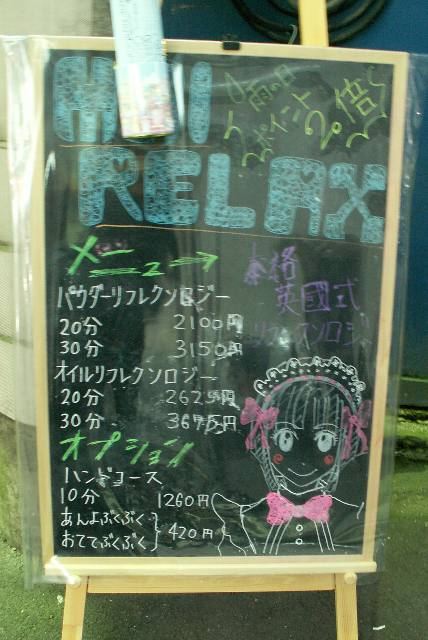 RELAX
雨の日
ポイント
2倍
メニュー
本格
英國式
リフレクソロジー
パウダーリフレクソロジー
20分 2100円
30分 3150円
オイルリフレクソロジー
20分 2625円
30分 3675円
オプション
ハンドコース
10分 1260円
あんよぷくぷく
おててぷくぷく 420円